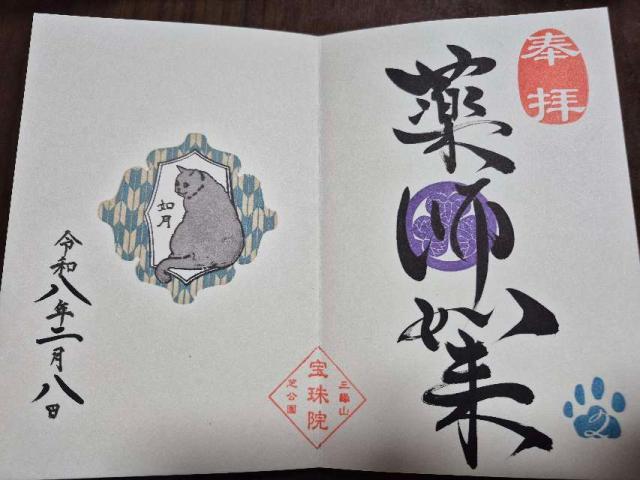 奉拝
薬師如来
三縁山
宝珠院
芝公園
如月
令和八年二月八日